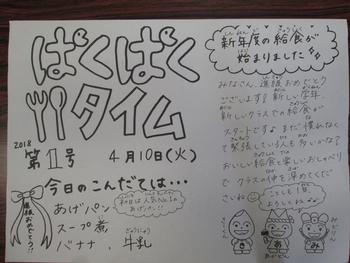 ぱくぱく
タイム
2018
第1号
4月10日(火)
進級おめでとう!!
今日のこんだては・・・
あげパン
スープ煮
バナナ、牛乳
ぎゅうにゅう
新年度の給食が
始まりました
みなさん、進級おめでとう
ございます!新しい学年、
新しいクラスでの給食が
スタートです♪まだ慣れなく
て緊張している人も多いかな?
おいしい給食と楽しいおしゃべり
で クラスの仲を深めてくだ
さいね
ことしも1年
よろしくね
き
あ
み